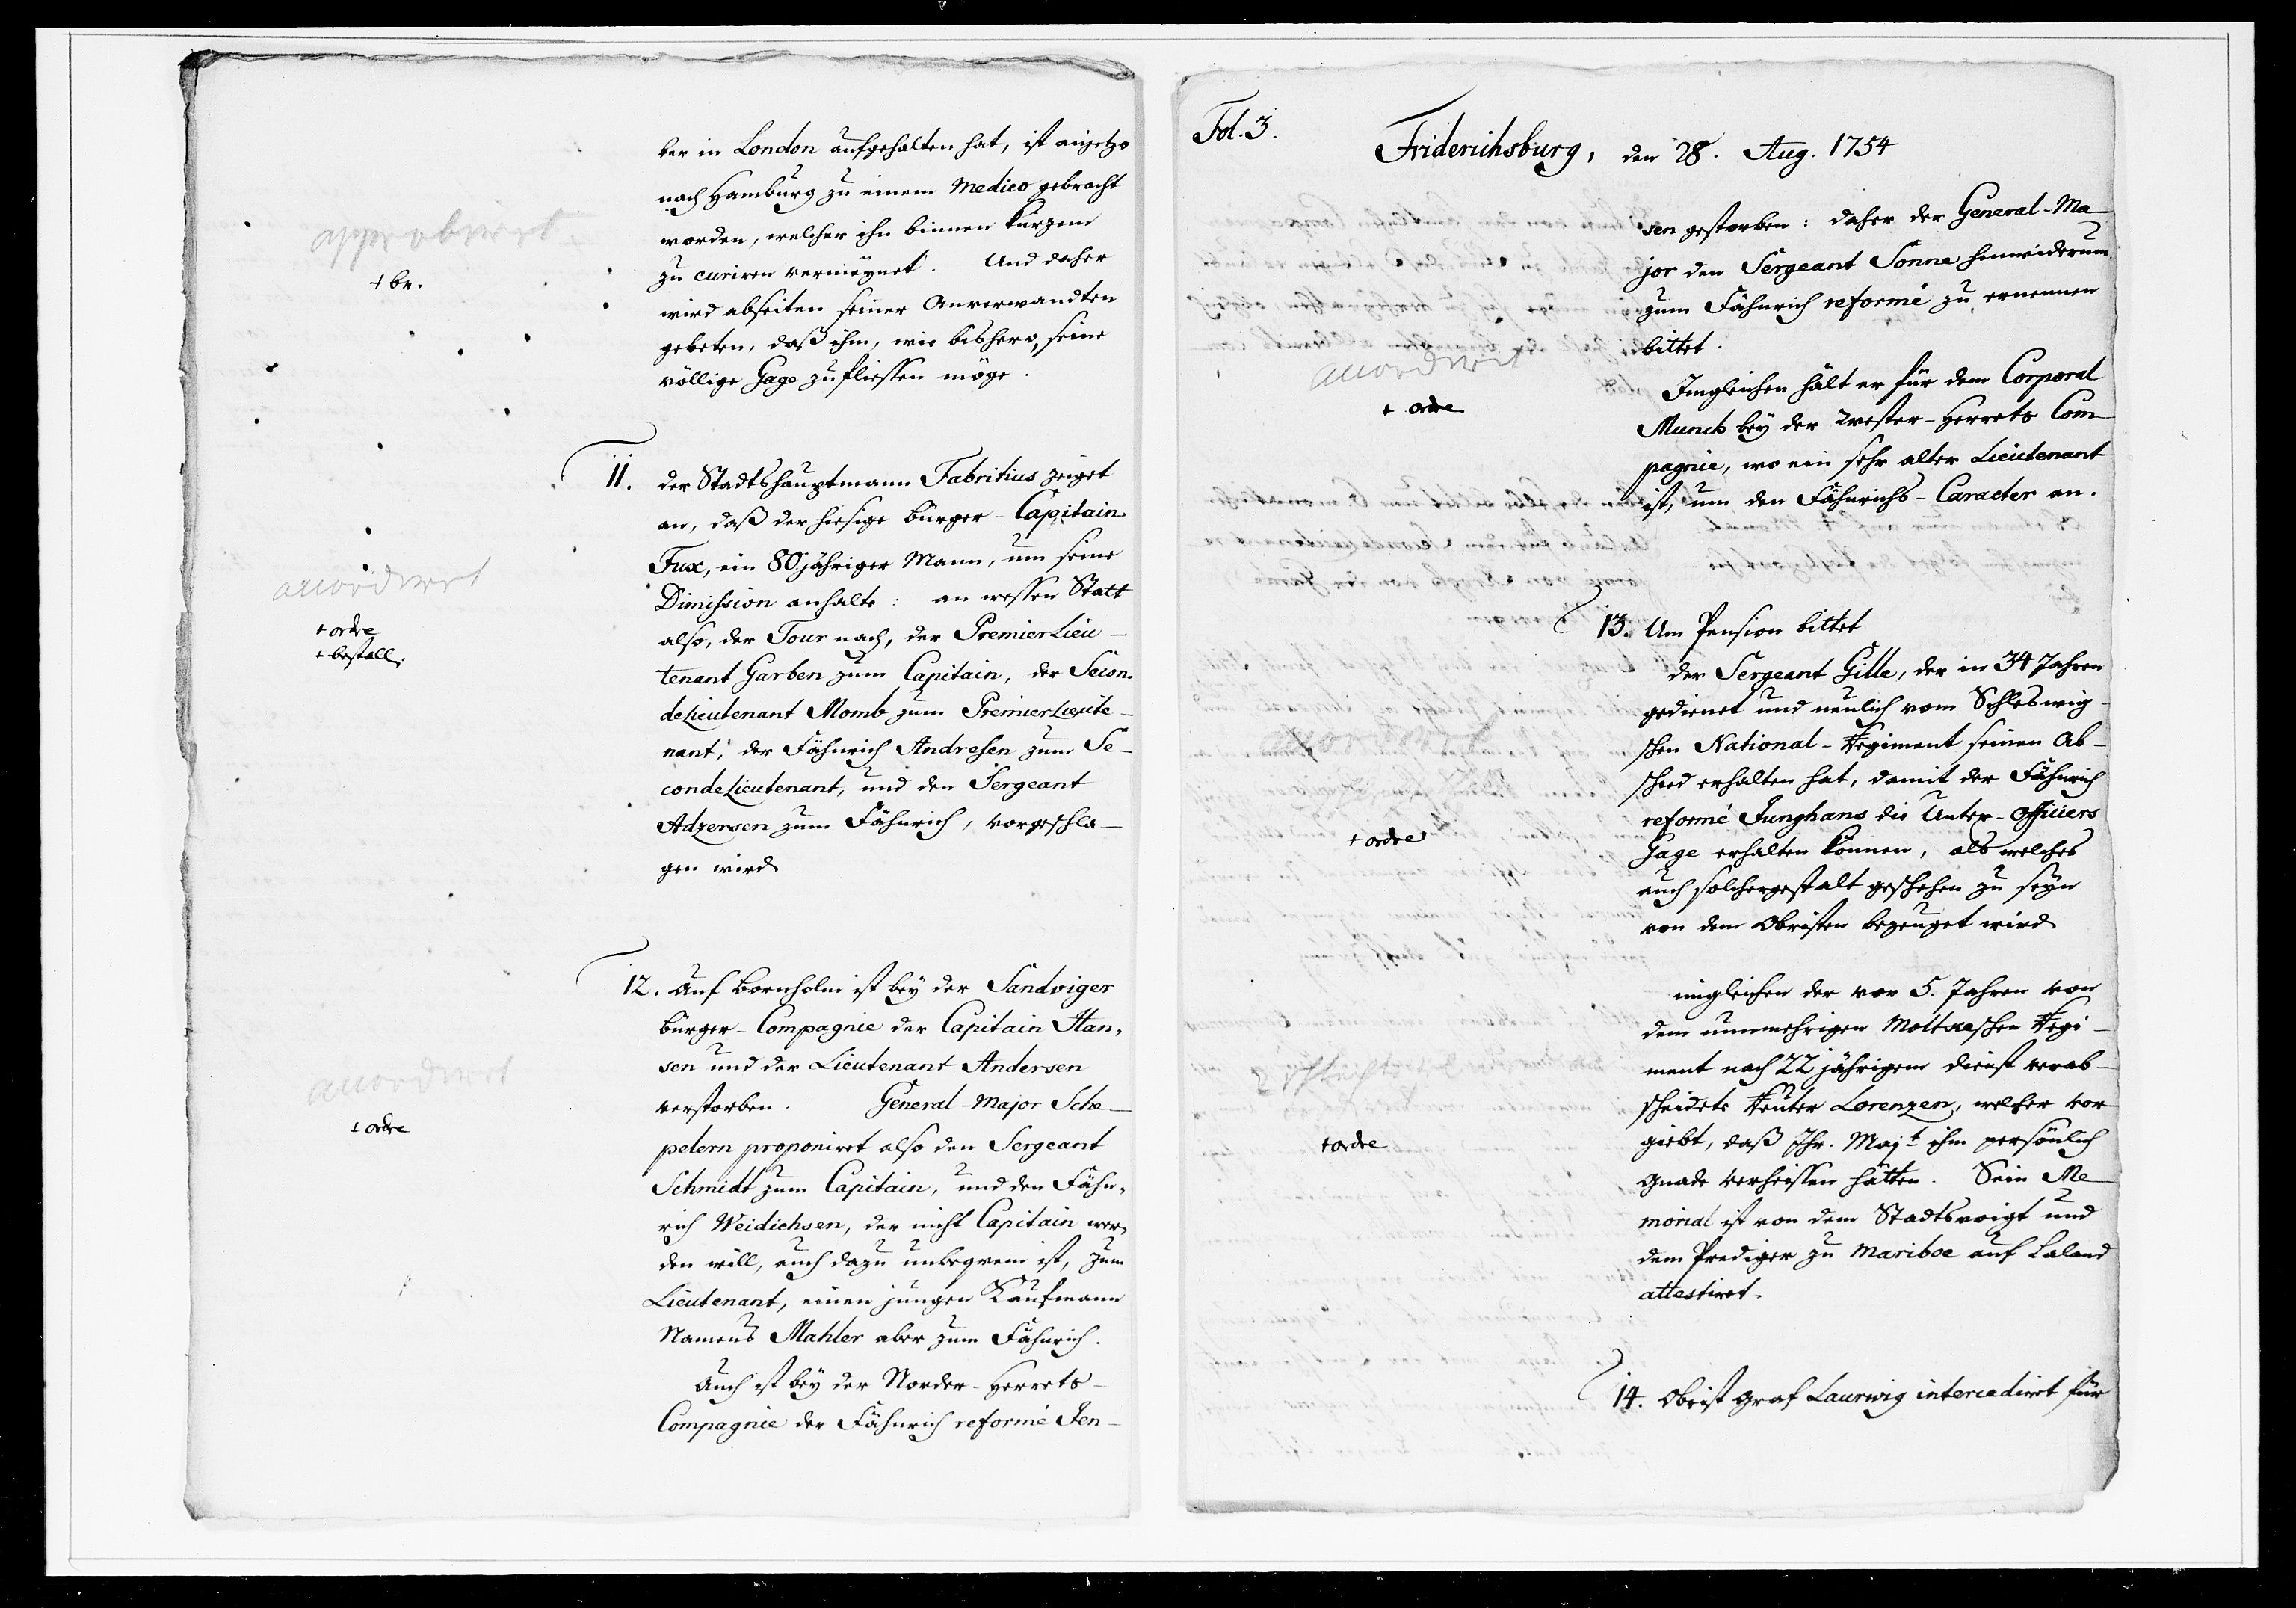 ber in London aufgehalten hat, ist anjetzo
nach Hamburg zu einem Medico gebracht
worden, welcher ihn binnen kurzem
zu curiren vermeynet. Und daher
wird abseiten seiner Anverwandten
gebeten, daß ihm, wie bishero, seine
völlige Gage zufliessen möge.
approbiret
+ br.
11. der Stadtshauptmann Fabritius zeiget
an, daß der hiesige Bürger-Capitain
Fux, ein 80jähriger Mann, um seine
Dimission anhalte: an wessen Statt
also, der Tour nach, der PremierLieu-
tenant Garben zum Capitain, der Secon-
deLieutenant Momb zum PremierLieute-
nant, der Fähnrich Andresen zum Se-
condeLieutenant, und der Sergeant
Adzersen zum Fähnrich, vorgeschla-
gen wird
accordiret
+ ordre
+ bestall.
12. Auf Bornholm ist bey der Sandviger
Bürger-Compagnie der Capitain Han-
sen und der Lieutenant Andersen
verstorben. General-Major Sche-
pelern proponiret also den Sergeant
Schmidt zum Capitain, und den Fähn-
rich Weidichsen, der nicht Capitain wer-
den will, auch dazu unbeqvem ist, zum
Lieutenant, einen jungen Kaufmann
Namens Mahler aber zum Fähnrich.
Auch ist bey der Norder-Herrets-
Compagnie der Fähnrich reformé Jen-
accordiret
+ ordre
Fol. 3.
Friderichsburg, den 28. Aug. 1754
sen gestorben: daher der General-Ma-
jor den Sergeant Sonne hinwiderum
zum Fähnrich reformé zu ernennen
bittet.
Imgleichen hält er für dem Corporal
Munch bey der Wester-Herrets Com-
pagnie, wo ein sehr alter Lieutenant
ist, um den Fähnrichs-Caracter an.
accordiret
+ ordre
13. Um Pension bittet
der Sergeant Gille, der in 34 Jahren
gedienet und neulich vom Schleswig-
schen National-Regiment seinen Ab-
schied erhalten hat, damit der Fähnrich
reformé Junghans die Unter-Officiers
Gage erhalten können, als welches
auch solchergestalt geschehen zu seyn
von dem Obristen bezeuget wird
+ ordre
imgleichen der vor 5. Jahren von
dem nunmehrigen Moltkeschen Regi-
ment nach 22 jährigem Dienst verab-
scheidete Reuter Lorenzen, welcher vor-
giebt, daß Ihr. Majt. ihm persönlich
Gnade verheissen hätten. Sein Me-
morial ist von dem Stadtsvoigt und
dem Prediger zu Mariboe auf Laland
attestiret.
+ ordre
14. Obrist Graf Laurwig intercediret für